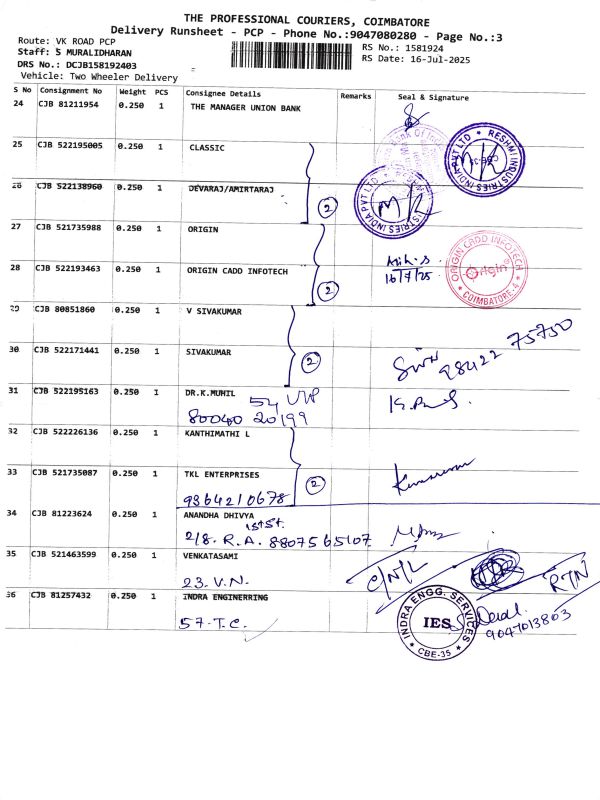 THE PROFESSIONAL COURIERS, COIMBATORE
Delivery Runsheet - PCP - Phone No.:9047080280 - Page No.:3
Route: VK ROAD PCP
Staff: S MURALIDHARAN
DRS No.: DCJB158192403
Vehicle: Two Wheeler Delivery
RS No.: 1581924
RS Date: 16-Jul-2025
S No Consignment No Weight PCS Consignee Details Remarks Seal & Signature
24 CJB 81211954 0.250 1 THE MANAGER UNION BANK
25 CJB 522195005 0.250 1 CLASSIC
RESHMI INDUSTRIES INDIA PVT LTD
26 CJB 522138960 0.250 1 DEVARAJ/AMIRTARAJ
2
27 CJB 521735988 0.250 1 ORIGIN
16/7/25
ORIGIN CADD INFOTECH
Origin
COIMBATORE-4
28 CJB 522193463 0.250 1 ORIGIN CADD INFOTECH
2
29 CJB 80851860 0.250 1 V SIVAKUMAR
98422 75750
30 CJB 522171441 0.250 1 SIVAKUMAR
2
31 CJB 522195163 0.250 1 DR.K.MUHIL
80040 20199
32 CJB 522226136 0.250 1 KANTHIMATHI L
33 CJB 521735087 0.250 1 TKL ENTERPRISES
2
9364210678
34 CJB 81223624 0.250 1 ANANDHA DHIVYA
1st St.
2/8. R.A. 8807565107
35 CJB 521463599 0.250 1 VENKATASAMI
C/N/L
R/N
23. V.N.
36 CJB 81257432 0.250 1 INDRA ENGINERRING
57-T.C.
INDRA ENGG. SERVICES
IES
CBE-35
9047013803